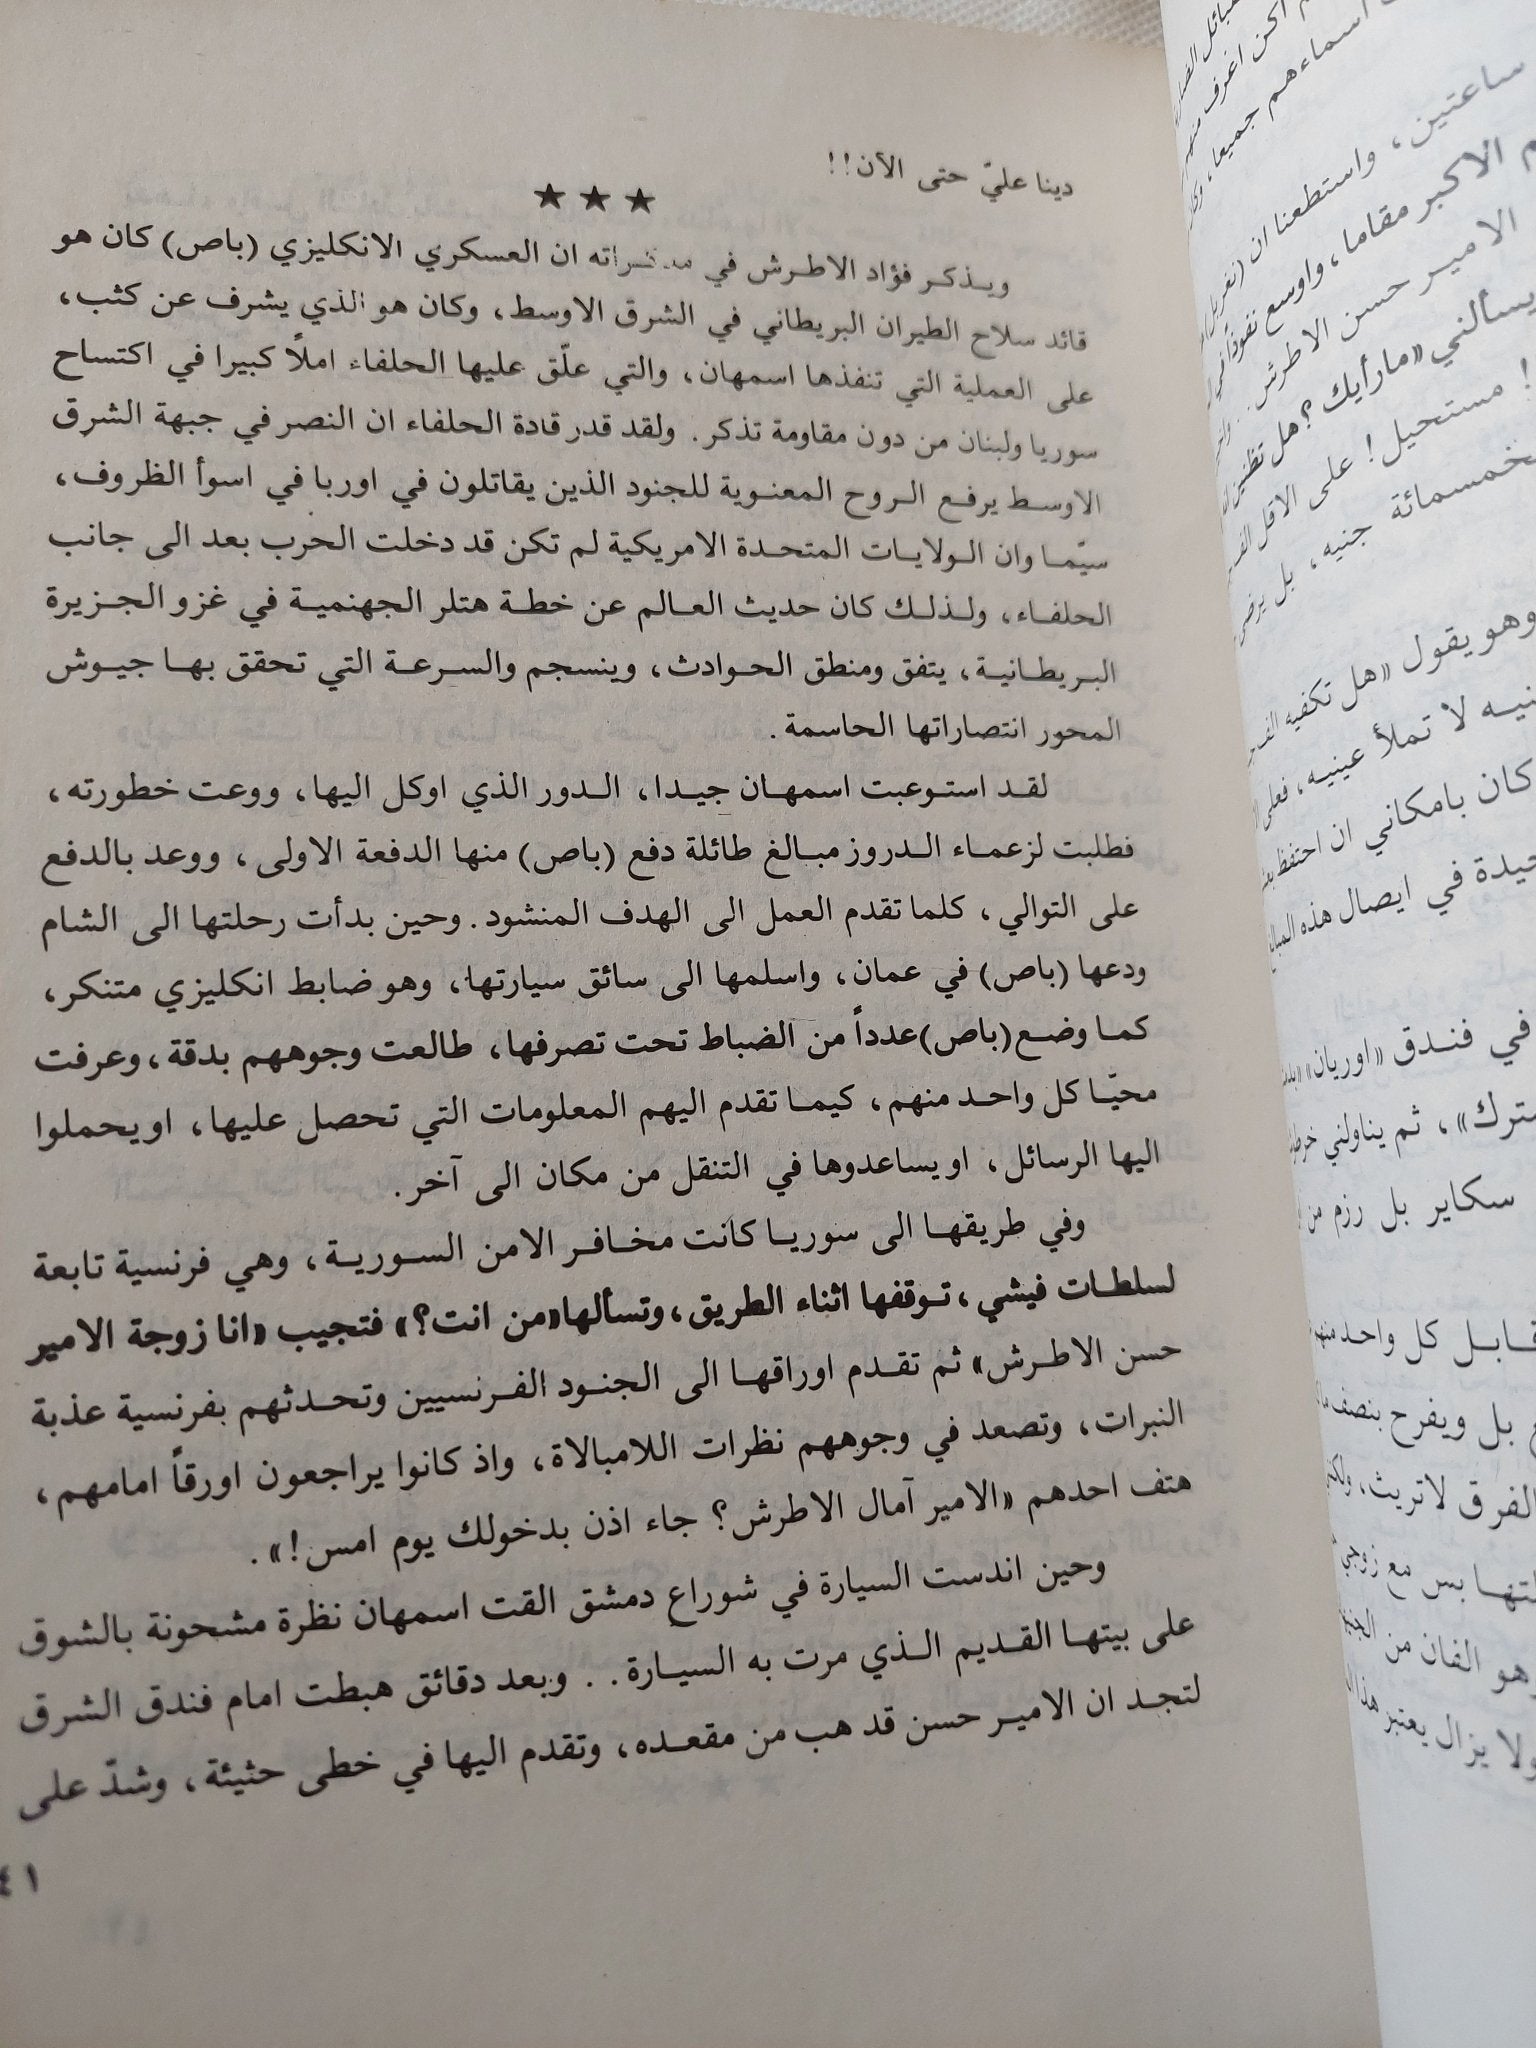 دينا عليّ حتى الآن!!
★ ★ ★
ويـذكـر فؤاد الاطـرش في مذكـراته ان العسكري الانكليزي (باص) كان هو
قائد سلاح الطيران البريطاني في الشرق الاوسط، وكان هو الذي يشرف عن كثب،
على العملية التي تنفذها اسمهان، والتي علّق عليها الحلفاء املاً كبيرا في اكتساح
سوريا ولبنان من دون مقاومة تذكر. ولقد قدر قادة الحلفاء ان النصر في جبهة الشرق
الاوسـط يرفـع الـروح المعنـوية للجنود الذين يقاتلون في اوربا في اسوأ الظروف،
سيّمـا وان الـولايـات المتحـدة الامريكية لم تكن قد دخلت الحرب بعد الى جانب
الحلفـاء، ولـذلـك كان حديث العـالم عن خطـة هتلر الجهنميـة في غزو الجـزيرة
البـريطـانيـة، يتفق ومنطق الحـوادث، وينسجم والسـرعـة التي تحقق بهـا جيـوش
المحور انتصاراتها الحاسمة.
لقـد استـوعبت اسمهـان جيـدا، الـدور الذي اوكل اليها، ووعت خطورته،
فطلبت لزعمـاء الـدروز مبـالغ طائلة دفع (باص) منها الدفعة الاولى، ووعد بالدفع
على التوالي، كلما تقدم العمل الى الهدف المنشود. وحين بدأت رحلتها الى الشام
ودعها (باص) في عمان، واسلمها الى سائق سيارتها، وهو ضابط انكليزي متنكر،
كمـا وضـع (باص) عدداً من الضباط تحت تصرفها، طالعت وجوههم بدقة، وعرفت
محيّا كل واحـد منهم، كيمـا تقدم اليهم المعلومات التي تحصل عليها، او يحملوا
اليها الرسائل، او يساعدوها في التنقل من مكان الى آخر.
وفي طريقهـا الى سوريـا كانت مخـافـر الامن السـوريـة، وهي فرنسية تابعة
لسلطـات فيشي، تـوقفها اثناء الطريق، وتسألها «من انت؟» فتجيب «انا زوجة الامير
حسن الاطـرش» ثم تقـدم اوراقهـا الى الجنـود الفـرنسيين وتحـدثهم بفرنسية عذبة
النبرات، وتصعد في وجوههم نظرات اللامبالاة، واذ كانوا يراجعون اورقاً امامهم،
هتف احدهم «الامير آمال الاطرش؟ جاء اذن بدخولك يوم امس!».
وحين اندست السيارة في شوراع دمشق القت اسمهان نظرة مشحونة بالشوق
على بيتهـا القـديم الـذي مرت به السيـارة.. وبعد دقائق هبطت امام فندق الشرق
لتجـد ان الاميـر حسن قد هب من مقعـده، وتقدم اليها في خطى حثيثة، وشدّ على
٤١
اسماءهم جميعا،
ساعتين، واستطعنا ان
الاكبر مقاما، واوسع نفوذاً
الاميـر حسن الاطرش.
يسألني «مارأيك؟ هل
! مستحيل! على الاقل
خمسمائة جنيه، بل
وهو يقول «هل تكفيه
لا تملأ عينيـه،
كان بامكاني ان احتفظ
في ايصال هذه
في فنـدق «اوريان»
ثم يناولني
سكاير بل رزم من
كل واحـد منهم
بل ويفرح بنصف
الفرق لاتريث،
بس مع زوجي
وهو الفان من
ولا يزال يعتبر هذا